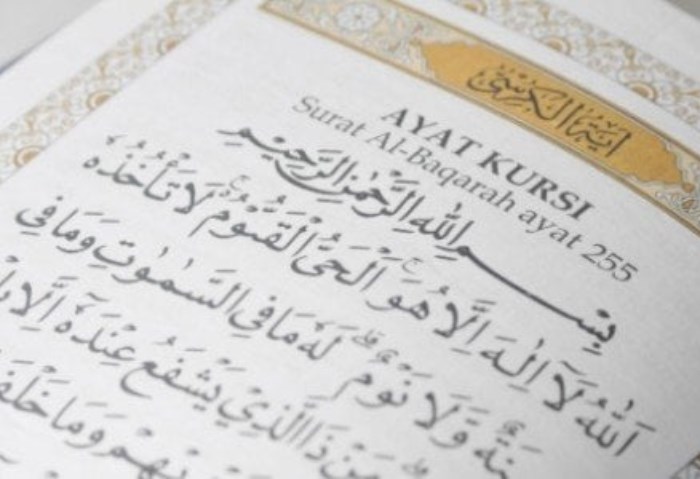 اٰيَةُ الْكُرْسِيِّ
AYAT KURSI
Surat Al-Baqarah ayat 255
بِسْمِ اللّٰهِ الرَّحْمٰنِ الرَّحِيْمِ
اَللّٰهُ لَآ اِلٰهَ اِلَّا هُوَ ۚ اَلْحَيُّ الْقَيُّوْمُ ۚ لَا تَأْخُذُهٗ
سِنَةٌ وَّلَا نَوْمٌ ۗ لَهٗ مَا فِى السَّمٰوٰتِ وَمَا فِى
مَنْ ذَا الَّذِيْ يَشْفَعُ عِنْدَهٗٓ اِلَّا
وَمَا خَلْفَ